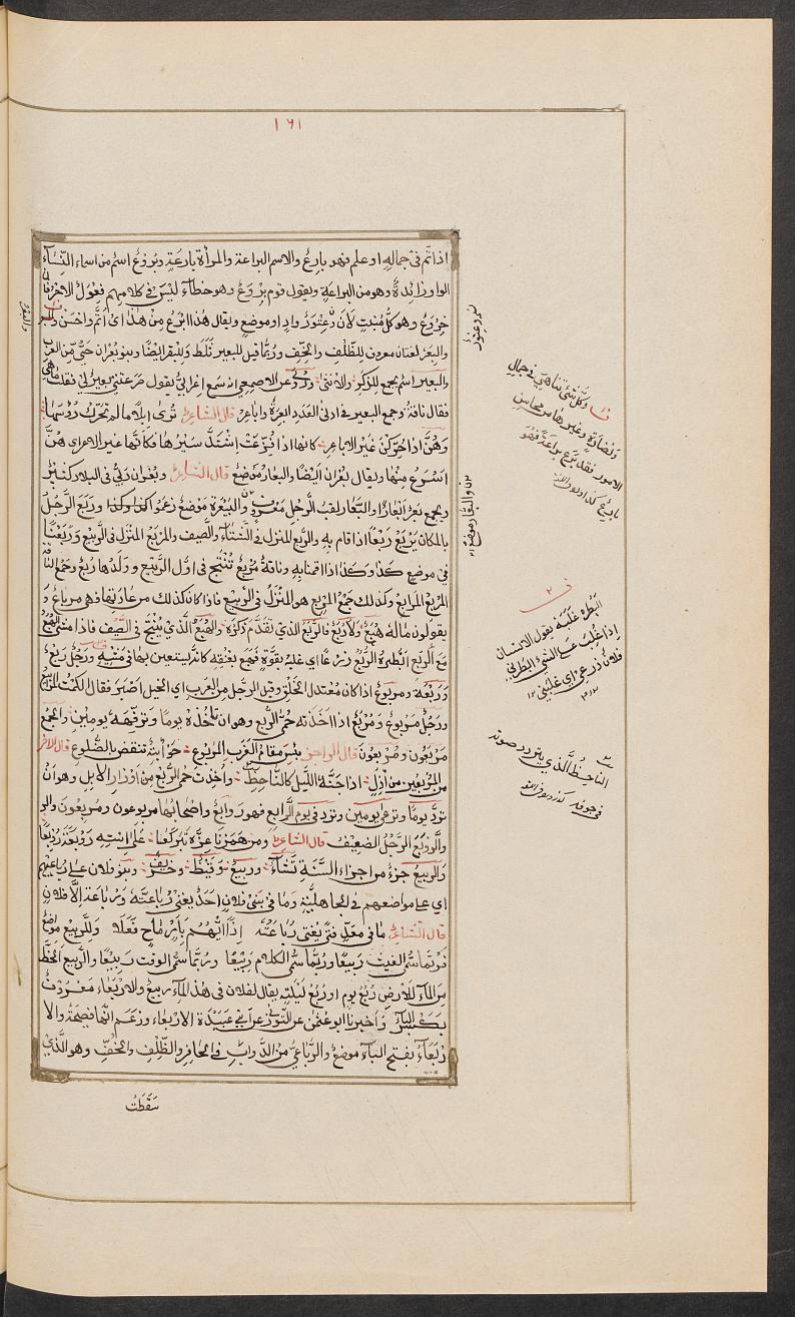 ١٦١
اذا تم فى جماله او علم فهو بارع والاسم البراعة والمرأة بارعة وبروع اسم من اسماء النساء
الواو زائدة وهو من البراعة ويقول قوم بِروع وهو خطاء ليس في كلامهم فعول الا خر
خروع وهو كل نبت لان وعتور واد او موضع ويقال هذا ابرع من هذا اى اتم واحسن
والبعر لغتان معروف للظلف والخف وربما قيل للبعير ثلط وللبقر ايضا وبنو بعران حي من العرب
والبعير اسم يجمع للذكر والانثى وذكر عن الاصمعي انه سمع اعرابيا يقول صرعتني بعير لي فقلت ما هي
فقال ناقة وجمع البعير في ادنى العدد ابعرة واباعر قال الشاعر ترى ابلا ما لم تحرك رؤسها
وهن اذا حركن غير الاباعر كانها اذا فزعت اشتد سيرها فكانها غير الاباعر اى هن
اسرع منها ويقال بعران ايضا والبعار موضع قال الشاعر وبعران ربي في البلاد كثير
ويجمع بعر ابعارا والبعار لقب الرجل معروف والبيعرة موضع زعموا وربع الرجل
بالمكان يربع ربعا اذا اقام به والربع المنزل في الشتاء والصيف والمربع المنزل في الربيع وربعنا
في موضع كذا وكذا اذا اقمنا به وناقة مربع تنتج في اول الربيع وولدها ربع وجمع
المربع المرابع وكذلك جمع المربع هو المنزل في الربيع فاذا كان كذلك من عادتها فهي مرباع و
يقولون ماله هبع ولا ربع فالربع الذي تقدم ذكره والهبع الذي ينتج في الصيف فاذا مشى الهبع
مع الربع ابطره الربع ذرعا اى غلبه بقوة فهبع بعنقه كانه يستعين بها في مشيه ورجل ربع
وربعة ومربوع اذا كان معتدل الخلق وقيل لرجل من العرب اي الخيل اصبر فقال الكمت المرابيع
ورجل مربوع ومربع اذا اخذته حمى الربع وهو ان تاخذه يوما وترفهه يومين والجمع
مربعون ومربعون قال الراجز بئس مقام الغرب المربوع حوابة تنقض بالضلوع قال الاخر
من المربعين من آزل اذا جنه الليل كالناحط واخذت حمى الربع من اوراد الابل وهو ان
ترد يوما وترعى يومين وترد في يوم الرابع فهو رابع واصحابها مربوعون ومربعون
والروبع الرجل الضعيف قال الشاعر ومن همزنا عزه تبركعا على استه روبعة او روبعا
والربيع جزء من اجزاء السنة شتاء وربيع وقيظ وخريف وبنو فلان على رباعتهم
اى على مواضعهم في الجاهلية وما في بني فلان احد يغني رباعته ورباعة الا فلان
قال الشاعر ما في معد فتى يغني رباعته اذا يهم بامر صالح فعلا وللربيع مواضع
فربما سمى الغيث ربيعا وربما سمى الكلاء ربيعا وربما سمى الوقت ربيعا والربيع الحظ
من الماء للارض ربع يوم او ربع ليلة يقال لفلان في هذا الماء ربيع والاربعاء معروف
بكسر الباء واخبرنا ابو عثمن عن التوزي عن ابي عبيدة الاربعاء وزعم انها فصيحة والا
ربعاء بفتح الباء موضع والرباعي من الدواب في الحافر والظلف والخف وهو الذي
سقطت
وكل شئ تناهى في جمال
ونضارة وغيرها من محاسن
الامور فقد برع براعة فهو
بارع
البطر غلبة يقول الانسان
اذا غلب على الشئ ابطرني
فلان ذرعي اى غلبني
الناحط الذي يتردد صوته
في جوفه